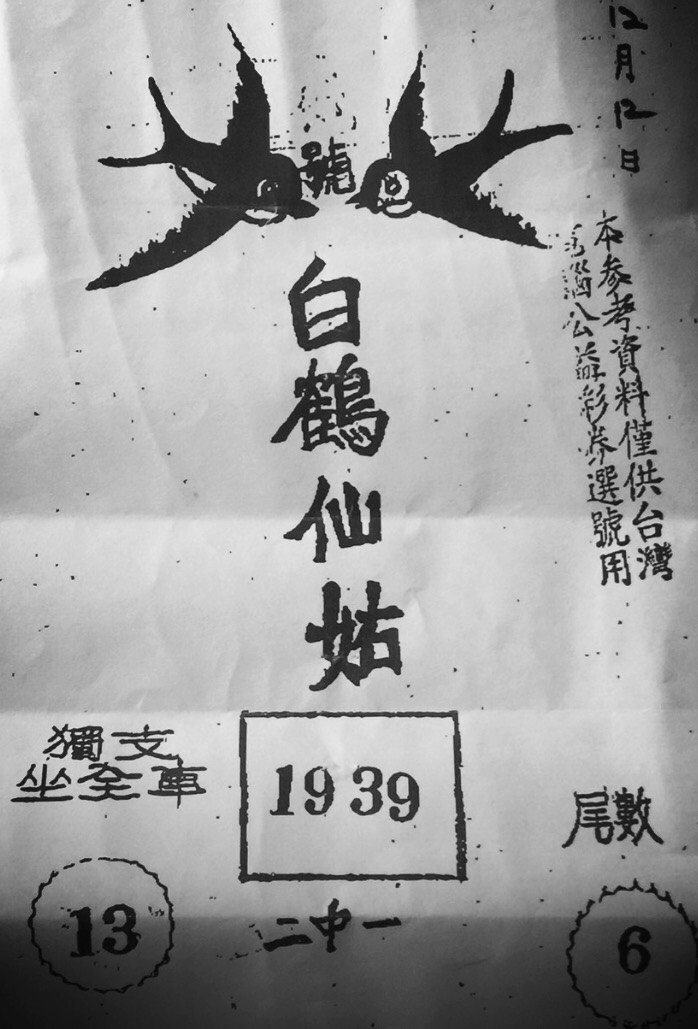 12月12日
本參考資料僅供台灣
公益彩券選號用
號
白鶴仙姑
獨支
坐全車
13
19 39
二中一
尾數
6